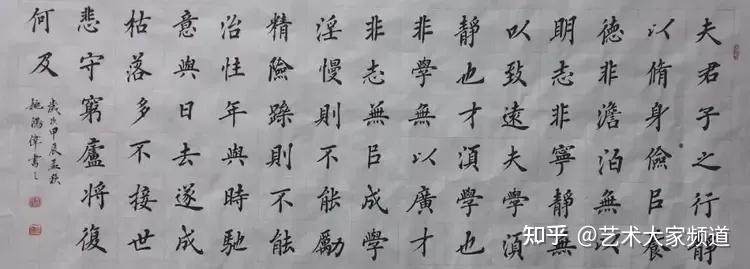 夫君子之行靜
以脩身儉㠯養
德非澹泊無以
明志非寧靜無
以致遠夫學湏
靜也才湏學也
非學無以廣才
非志無㠯成學
淫慢則不能勵
精險躁則不能
治性年與時馳
意與日去遂成
枯落多不接世
悲守窮廬將復
何及
歲次甲辰孟秋
施偉書之
知乎 @艺术大家频道